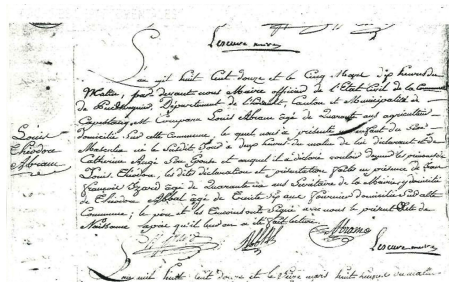 Lescure maire
L'an mil huit Cent douze et le Cinq Mars dix heures du
Matin, par devant nous Maire officier de l'Etat Civil de la Commune
de Puisserguier, Département de l'herault, Canton et Municipalité de
Capestang, est Comparu Louis Abram agé de quarante ans agriculteur
domicilié Sud. dite Commune, le quel nous a présenté enfant du Sexe
Masculin né le Susdit Jour à deux heures du matin de lui déclarant et de
Catherine Augé Son Epouse et auquel il a déclaré vouloir donner les prénoms de
Louis, Théodore, les dites déclaration et présentation faite en présence de Jean
françois agé de quarante six ans Secrétaire de la Mairie, domicilié
et de Théodore Abbal agé de trente six ans domicilié Sud. dite
Commune; le père et les témoins ont Signé avec nous le présent acte de
Naissance après qu'il leur en a été fait lecture
Louis
Théodore
Abram
Abbal Abram
Lescure maire
L'an mil huit Cent douze et le mars huit heures du matin